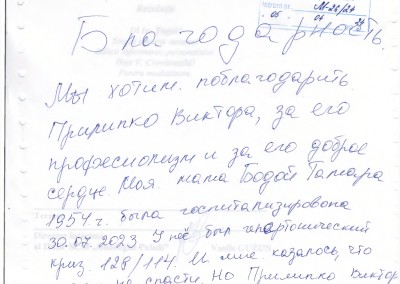 M-26/24
05 04 24
Благодарность.
Мы хотим поблагодарить
Прилипко Виктора, за его
професионлизм и за его доброе
сердце. Моя мама Бодой Тамара
1954 г. была госпитализирована
30.07.2023. У неё был гипертонический
криз. 128/114. И мне казалось, что
не спасти. Но Прилипко Виктор